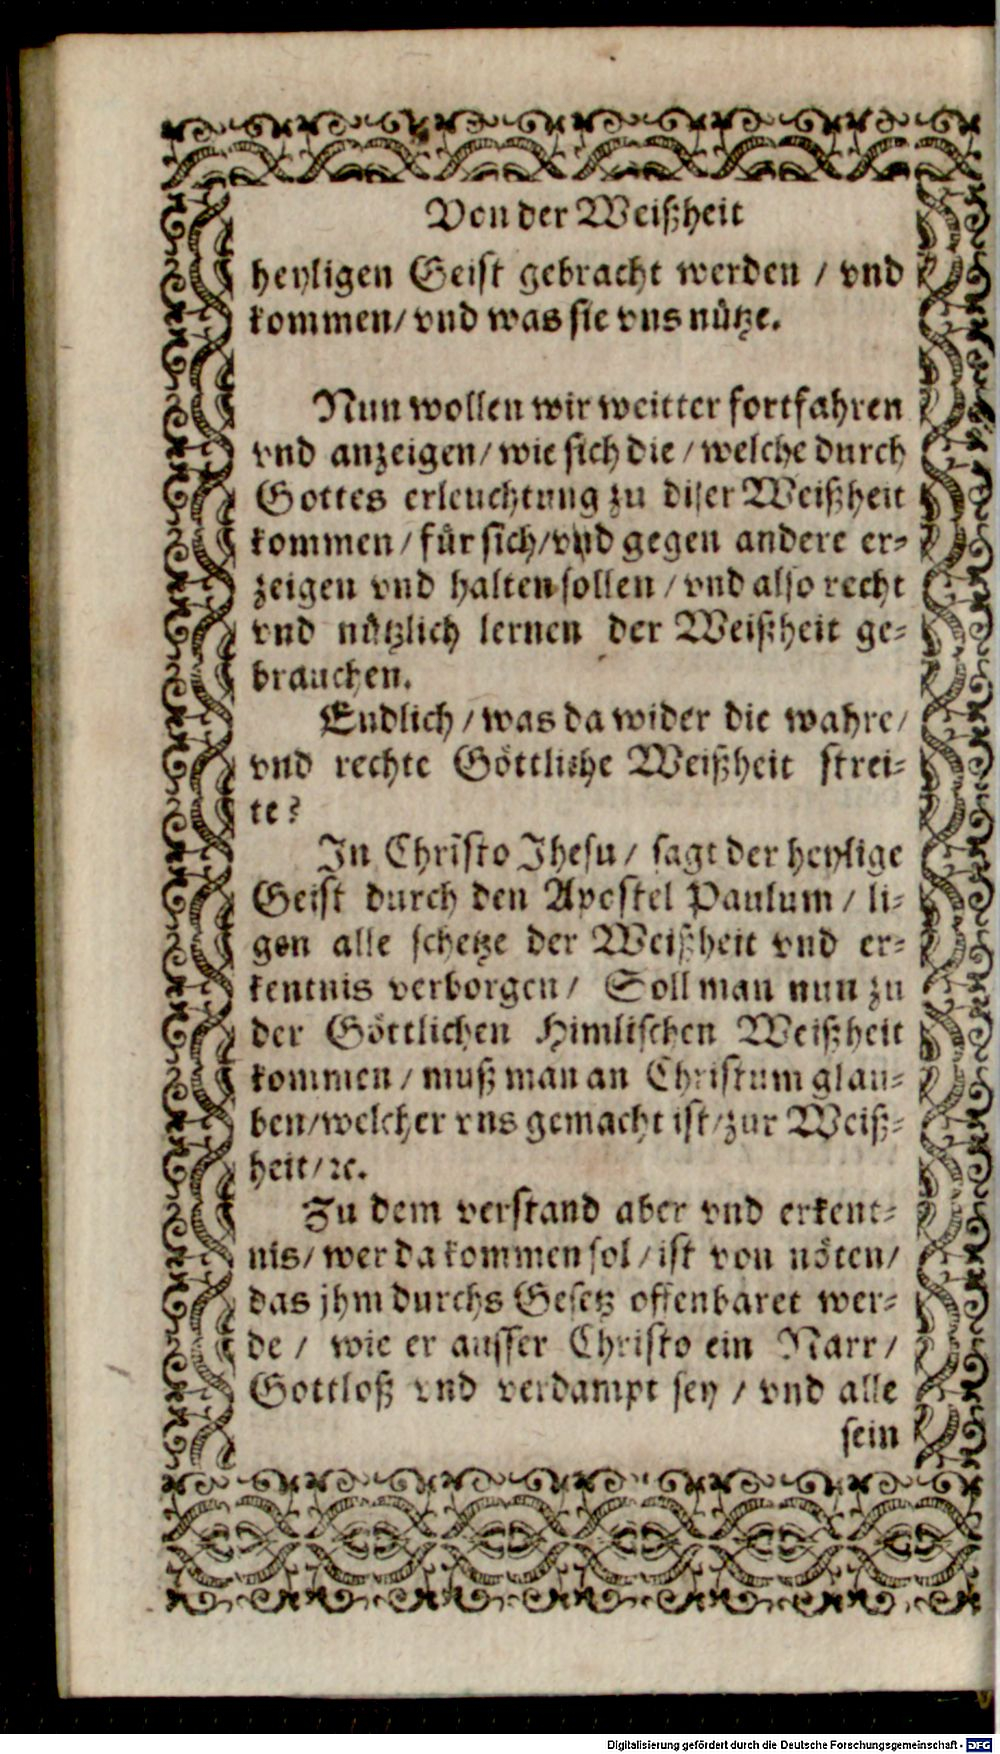 Von der Weißheit
heyligen Geist gebracht werden / vnd
kommen/ vnd was sie vns nütze.
Nun wollen wir weitter fortfahren
vnd anzeigen/ wie sich die / welche durch
Gottes erleuchtung zu diser Weißheit
kommen / für sich/vnd gegen andere er-
zeigen vnd halten sollen / vnd also recht
vnd nützlich lernen der Weißheit ge-
brauchen.
Endlich / was da wider die wahre/
vnd rechte Göttliche Weißheit strei-
te?
In Christo Jhesu / sagt der heylige
Geist durch den Apostel Paulum / li-
gen alle schetze der Weißheit vnd er-
kentnis verborgen / Soll man nun zu
der Göttlichen Himlischen Weißheit
kommen / muß man an Christum glau-
ben/welcher vns gemacht ist/zur Weiß-
heit/ ꝛc.
Zu dem verstand aber vnd erkent-
nis/ wer da kommen sol / ist von nöten/
das jhm durchs Gesetz offenbaret wer-
de / wie er ausser Christo ein Narr /
Gottloß vnd verdampt sey / vnd alle
sein
Digitalisierung gefördert durch die Deutsche Forschungsgemeinschaft - DFG